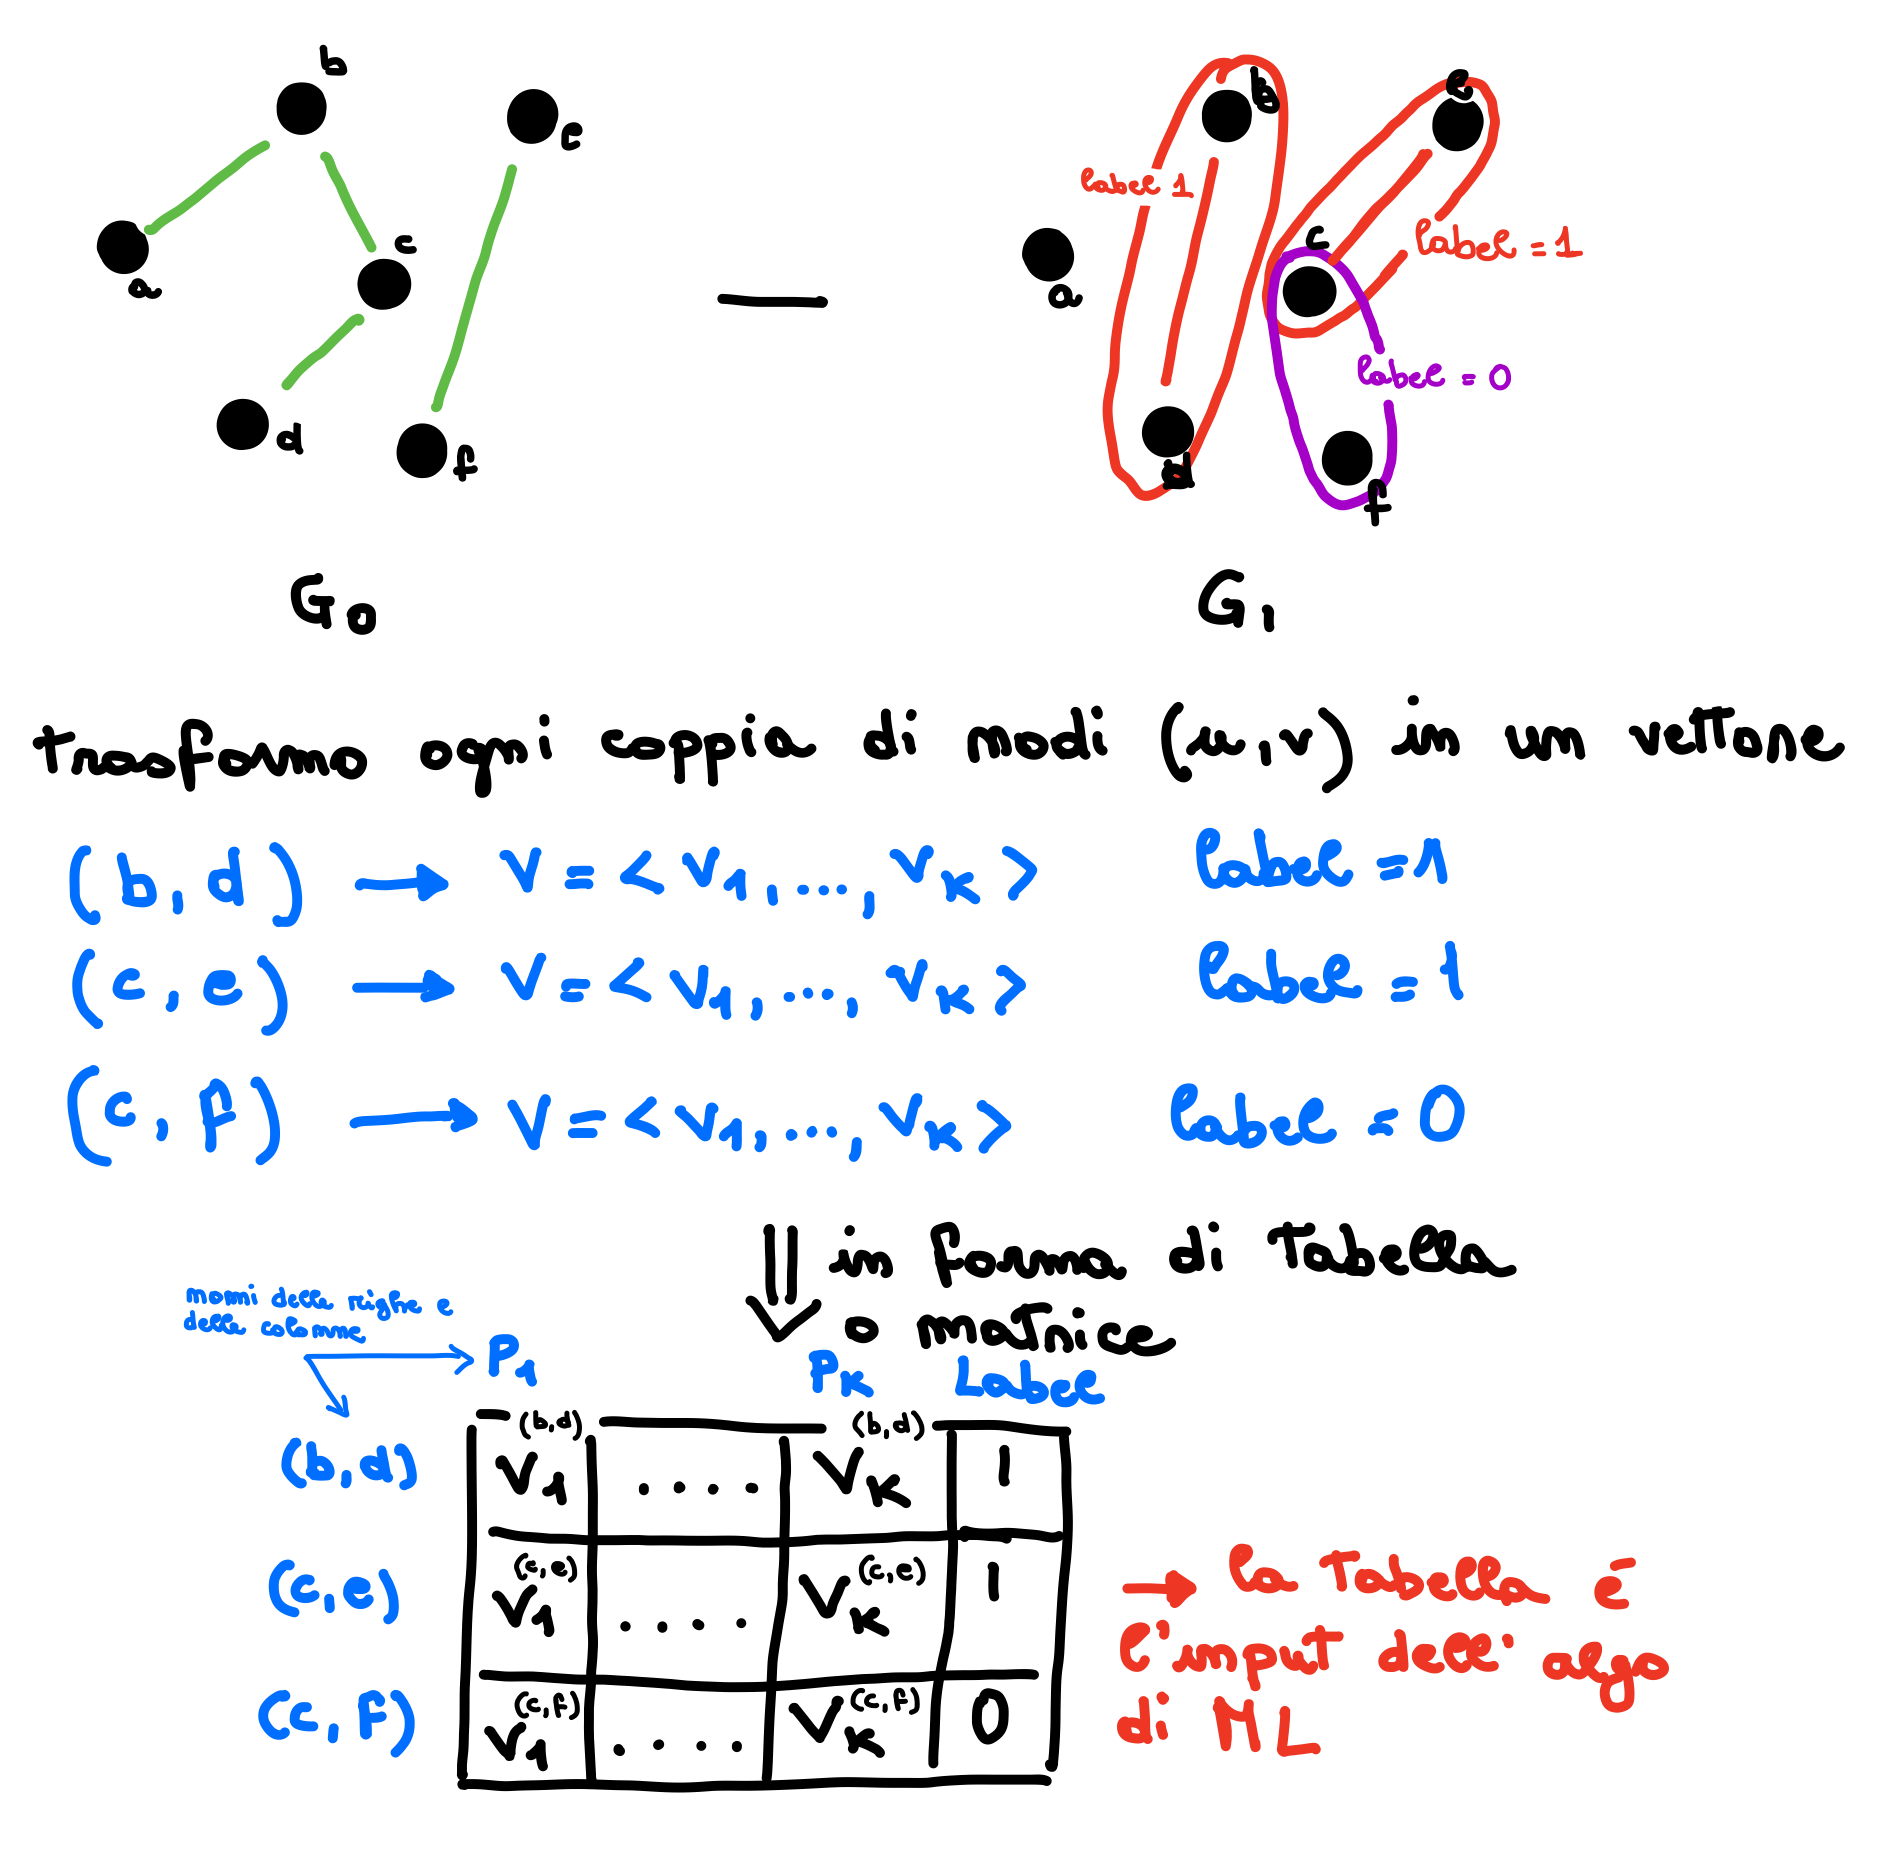 b
e
c
a
d
f
G₀
b
e
label 1
label = 1
c
a
label = 0
d
f
G₁
trasformo ogni coppia di nodi (u,v) in un vettore
(b,d) → v = < v₁, ..., vₖ > label = 1
(c,e) → v = < v₁, ..., vₖ > label = 1
(c,f) → v = < v₁, ..., vₖ > label = 0
⇓ in forma di tabella
o matrice
nomi delle righe e
delle colonne
P₁ Pₖ Label
(b,d) v₁^(b,d) .... vₖ^(b,d) 1
(c,e) v₁^(c,e) .... vₖ^(c,e) 1
(c,f) v₁^(c,f) .... vₖ^(c,f) 0
→ la tabella é
l'input dell' algo
di ML